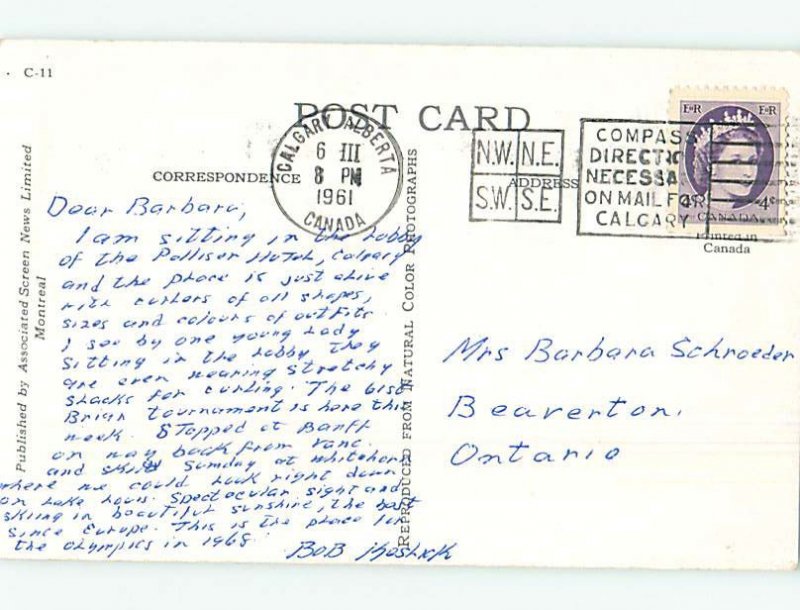 C-11
POST CARD
CALGARY ALBERTA
6 III
8 PM
1961
CANADA
N.W. N.E.
S.W. S.E.
COMPASS
DIRECTIO
NECESSA
ON MAIL FOR
CALGARY
E II R E II R
4c 4c
CANADA
Printed in
Canada
CORRESPONDENCE
ADDRESS
Published by Associated Screen News Limited
Montreal
REPRODUCED FROM NATURAL COLOR PHOTOGRAPHS
Dear Barbara,
I am sitting in the lobby
of the Palliser Hotel, Calgary
and the place is just alive
with curlers of all shapes,
sizes and colours of outfits.
I see by one young lady
sitting in the lobby they
are even wearing stretchy
slacks for curling. The big
Briar tournament is here this
week. Stopped at Banff
on way back from Vanc.
and skied Sunday at Whitehorn
where we could look right down
on Lake Louis. Spectacular sight and
skiing in beautiful sunshine, the best
since Europe. This is the place for
the Olympics in 1968
BOB
Mrs Barbara Schroeder
Beaverton,
Ontario